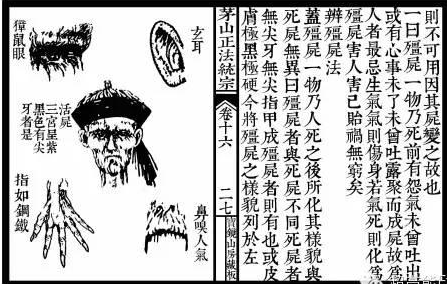 則不可用因其屍變之故也
一曰殭屍一物乃死前有怨氣未曾吐出
或有心事未了未曾吐露聚而成屍故爲
人者最忌生氣氣則傷身若氣死則化爲
殭屍害人害已貽禍無窮矣
辨殭屍法
蓋殭屍一物乃人死之後所化其樣貌與
死屍無異曰殭屍者與死屍不同死屍者
無尖牙無尖指甲成殭屍者則有也或皮
膚極黑極硬今將殭屍之樣貌列於左
茅山正法統宗
卷十六
二七
鏡山房藏板
玄耳
獐鼠眼
活屍
三宮呈紫
黑色有尖
牙者是
鼻嗅人氣
指如鋼鐵